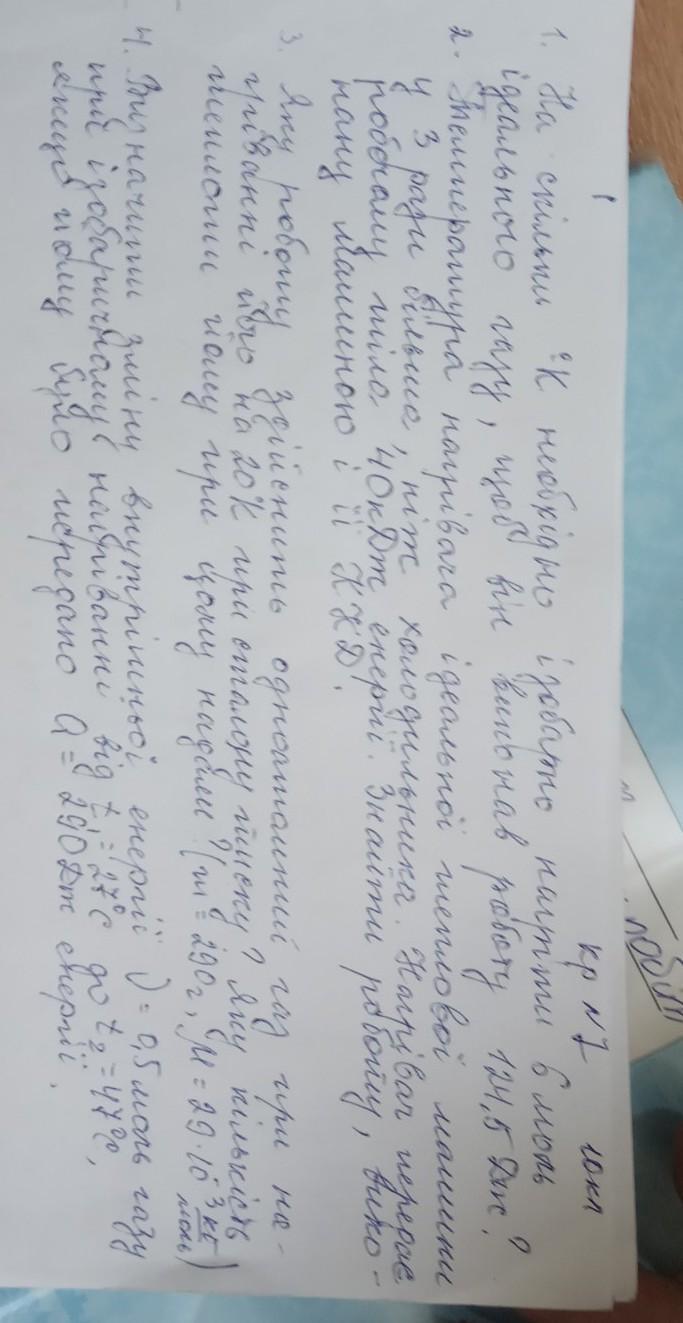 кр N 7 10кл
1
1. На скільки °К необхідно ізобарно нагріти 6 моль
ідеального газу, щоб він виконав роботу 124,5 Дж?
2. Температура нагрівача ідеальної теплової машини
у 3 рази більша, ніж холодильника. Нагрівач передає
робочому тілу 40кДж енергії. Знайти роботу, вико-
нану машиною і її ККД.
3. Яку роботу здійснить одноатомний газ при на-
гріванні його на 20°К при сталому тиску? Яку кількість
теплоти йому при цьому надали? (m = 290г, μ = 29·10⁻³ кг/моль)
4. Визначити зміну внутрішньої енергії ν = 0,5 моль газу
при ізобаричному нагріванні від t₁ = 27°C до t₂ = 47°C,
якщо йому було передано Q = 290Дж енергії.